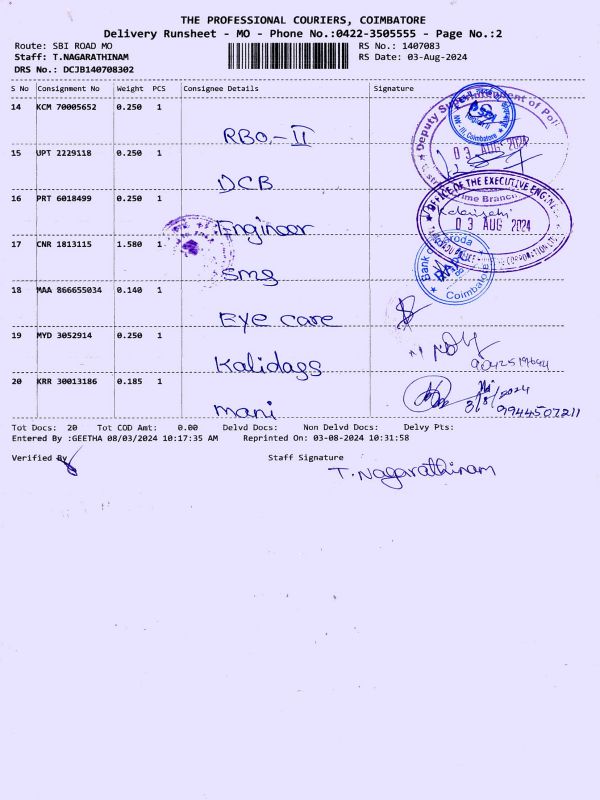 THE PROFESSIONAL COURIERS, COIMBATORE
Delivery Runsheet - MO - Phone No.:0422-3505555 - Page No.:2
Route: SBI ROAD MO RS No.: 1407083
Staff: T.NAGARATHINAM RS Date: 03-Aug-2024
DRS No.: DCJB140708302
S No Consignment No Weight PCS Consignee Details Signature
14 KCM 70005652 0.250 1
RBO.-II
15 UPT 2229118 0.250 1
DCB
16 PRT 6018499 0.250 1
Engineer
17 CNR 1813115 1.580 1
Sms
18 MAA 866655034 0.140 1
Eye care
19 MYD 3052914 0.250 1
Kalidass
20 KRR 30013186 0.185 1
mani
Deputy of Poli
03 AUG 2024
Crime Branch
OFFICE OF THE EXECUTIVE ENGINE
03 AUG 2024
POLICE CORPORATION LTD
Bank of Baroda
Coimbatore
3/8/2024
9944507211
Tot Docs: 20 Tot COD Amt: 0.00 Delvd Docs: Non Delvd Docs: Delvy Pts:
Entered By :GEETHA 08/03/2024 10:17:35 AM Reprinted On: 03-08-2024 10:31:58
Verified By Staff Signature
T.Nagarathinam